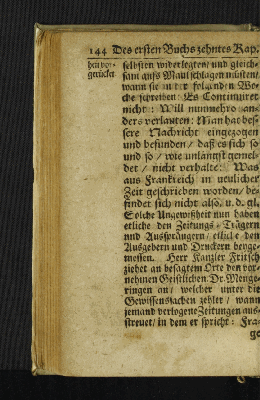 144 Des ersten Buchs zehntes Kap.
den vor-
gerücket
selbsten widerlegten/ und gleich-
sam aufs Maul schlagen müsten/
wann sie in der folgenden Wo-
che schreiben: Es Continuiret
nicht: Will nunmehro an-
ders verlauten: Man hat bes-
sere Nachricht eingezogen
und befunden/ daß es sich so
und so/ wie unlängst gemel-
det/ nicht verhalte: Was
aus Franckreich in neulicher
Zeit geschrieben worden/ be-
findet sich nicht also, u. d. gl.
Solche Ungewißheit nun haben
etliche den Zeitungs-Trägern
und Aussprängern/ etliche den
Ausgebern und Druckern beyge-
messen. Herr Kanzler Fritsch
ziehet an besagtem Orte den vor-
nehmen Geistlichen/ Dr. Menge-
ringen an/ welcher unter die
Gewissenssachen zehlet/ wann
jemand verlogene Zeitungen aus-
streuet/ in dem er spricht: Fra-
ge